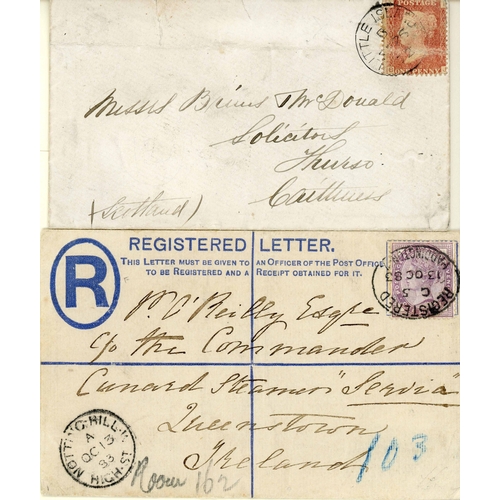 LITTLE IS
POSTAGE
ONE PENNY
Messrs Brims & McDonald
Solicitors
Thurso
Caithness
(Scotland)
R
REGISTERED LETTER.
THIS LETTER MUST BE GIVEN TO AN OFFICER OF THE POST OFFICE
TO BE REGISTERED AND A RECEIPT OBTAINED FOR IT.
REGISTERED
C 5
13 OC 83
Reilly Esqre
c/o the Commander
Cunard Steamer "Servia"
Queenstown
Ireland
NOTTING-HILL
HIGH-ST
A
OC 13
83
Room 162
103